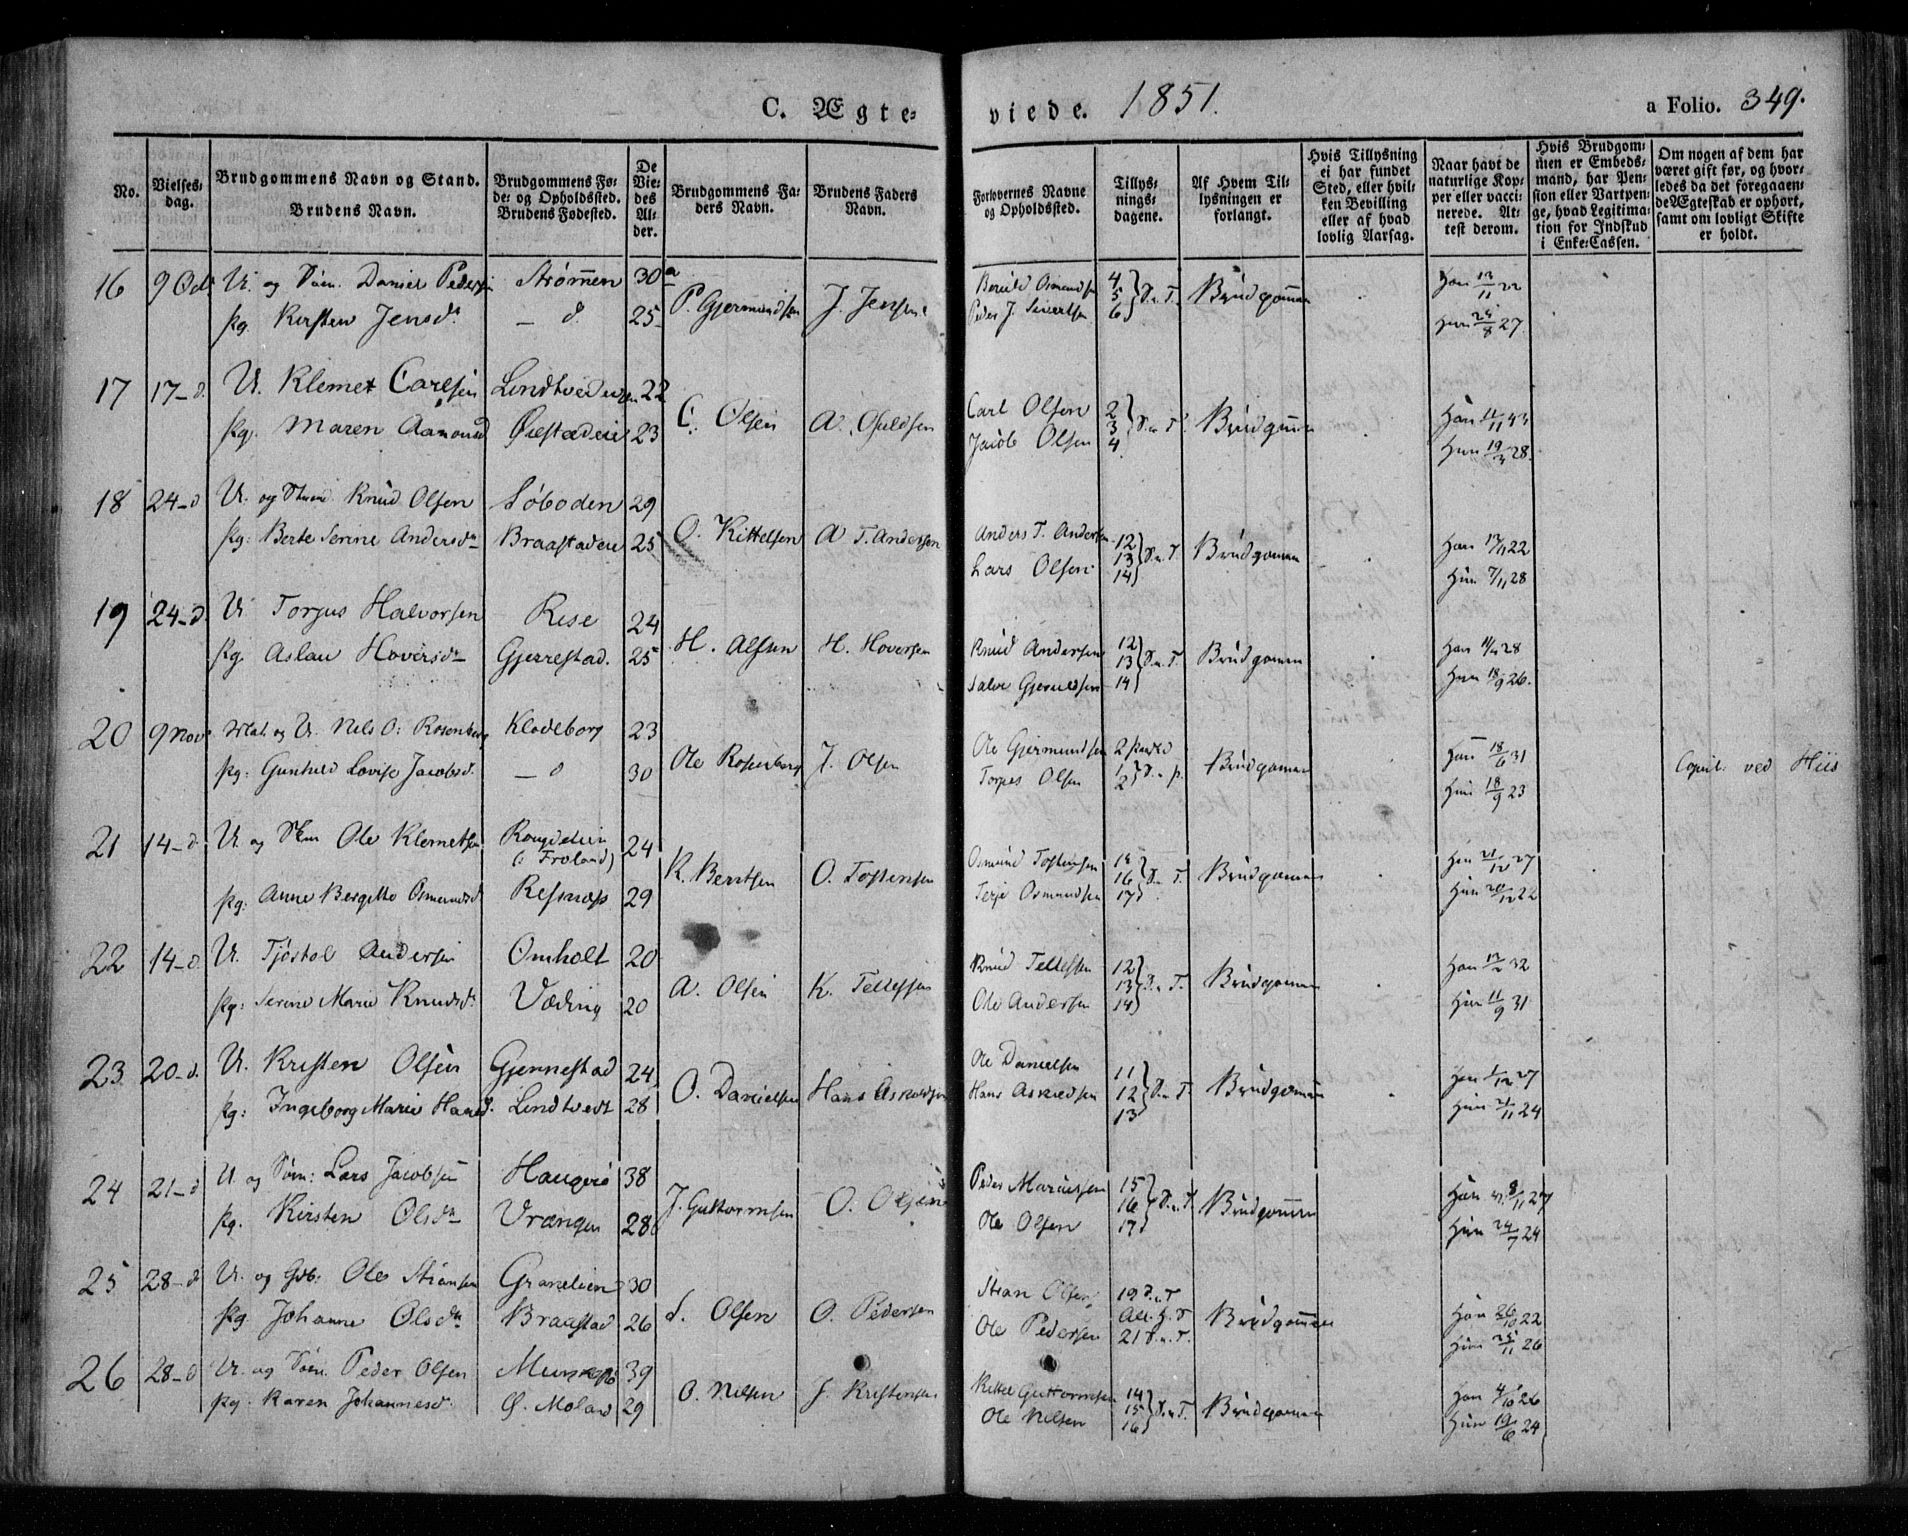 C. Ægte-
viede. 1851.
a Folio. 349.
No.
Vielses-
dag.
Brudgommens Navn og Stand.
Brudens Navn.
Brudgommens Fø-
de- og Opholdssted.
Brudens Fødested.
De
Vie-
des
Al-
der.
Brudgommens Fa-
ders Navn.
Brudens Faders
Navn.
Forlovernes Navne
og Opholdssted.
Tillys-
nings-
dagene.
Af Hvem Til-
lysningen er
forlangt.
Hvis Tillysning
ei har fundet
Sted, eller hvil-
ken Bevilling
eller af hvad
lovlig Aarsag.
Naar havt de
naturlige Kop-
per eller vacci-
nerede. At-
test derom.
Hvis Brudgom-
men er Embeds-
mand, har Pen-
sion eller Vartpen-
ge, hvad Legitima-
tion for Indskud
i Enke-Cassen.
Om nogen af dem har
været gift før, og hvor-
ledes da det foregaaen-
de Ægteskab er ophørt,
samt om lovligt Skifte
er holdt.
16 9 Oct. U. og Søm. Daniel Pedersen Strømen 30 P. Gjermundsen J. Jensen Osmundsen 4 5 6 S. u. T. Brudgommen Han 12/11 22
Pg. Kirsten Jensd. – d. 25 Peder J. Sivertsen Hun 24/8 27
17 17 – d. U. Klemet Carlsen Lindtvedt 22 C. Olsen A. Carl Olsen 2 3 4 S. u. T. Brudgommen Han 11/11 43
Pg. Maren Aamonsd. Øiestadeie 23 Jacob Olsen Hun 19/3 28.
18 24 – d. U. og Knud Olsen Søboden 29 O. Kittelsen A. T. Andersen Anders T. Andersen 12 13 14 S. u. T. Brudgommen Han 22
Pg: Berte Serine Andersd. Braastadeie 25 Lars Olsen Hun 7/11 28
19 24 – d. U. Torjus Halvorsen Rise 24 H. Alfsen H. Hoversen Knud Andersen 12 13 14 S. u. T. Brudgommen Han 28
Pg. Aslau Hoversd. Gjerrestad. 25 Salve Gjeruldsen Hun 18/9 26.
20 9 Nov. og U. Nils O. Rosenberg Klodeborg 23 Ole Rosenberg J. Olsen Ole Gjermundsen 2 1 2 Brudgommen Han 18/6 31 Copul. ved Hiis
Pg: Gunhild Lovise Jacobsd. – d 30 Torges Olsen Hun 18/9 23
21 14 – d. U. og Ole Klemetsen (: Froland) 24 K. Berntsen O. Tostensen Osmund Tostensen 16 17 S. u. T. Brudgommen Han 21/12 27
Pg: Anne Bergitte Osmundsd. Resnæs 29 Terje Osmundsen Hun 20/12 22
22 14 – d. U. Tjøstol Andersen Omholt 20 A. Olsen K. Tellefsen Knud Tellefsen 12 13 14 S. u. T. Brudgommen Han 12/2 32
Pg: Serine Marie Knudsd. Væding 20 Ole Andersen Hun 11/9 31
23 20 – d. U. Kristen Olsen Gjennestad 24 O. Danielsen Hans Ole Danielsen 11 12 13 S. u. T. Brudgommen Han 1/12 27
Pg: Ingeborg Marie Hansd. Lindtvedt 28 Hans Hun 21/11 24
24 21 – d U. og Søm: Lars Jacobsen Haugeriø 38 J. Guttormsen O. Olsen Peder Mariussen 15 16 17 S. u. T. Brudgommen Han 8/11 27
Pg. Kirsten Olsd. Vrængen 28 Ole Olsen Hun 24/7 24
25 28 – d U. og Gdb: Ole Stiansen Granelien 30 S. Olsen O. Pedersen Stian Olsen 19 S. u. T Brudgommen Han 26/10 22
Pg. Johanne Olsd. Braastad 26 Ole Pedersen 21 S. u. T. Hun 25/11 26
26 28 – d U. og Søm. Peder Olsen 39 O. Nilsen J. Kristensen Kittel Guttormsen 14 15 16 S. u. T. Brudgommen Han 4/10 26
Pg. Karen Johannesd. Ø. Moland 29 Ole Nilsen Hun 19/6 24